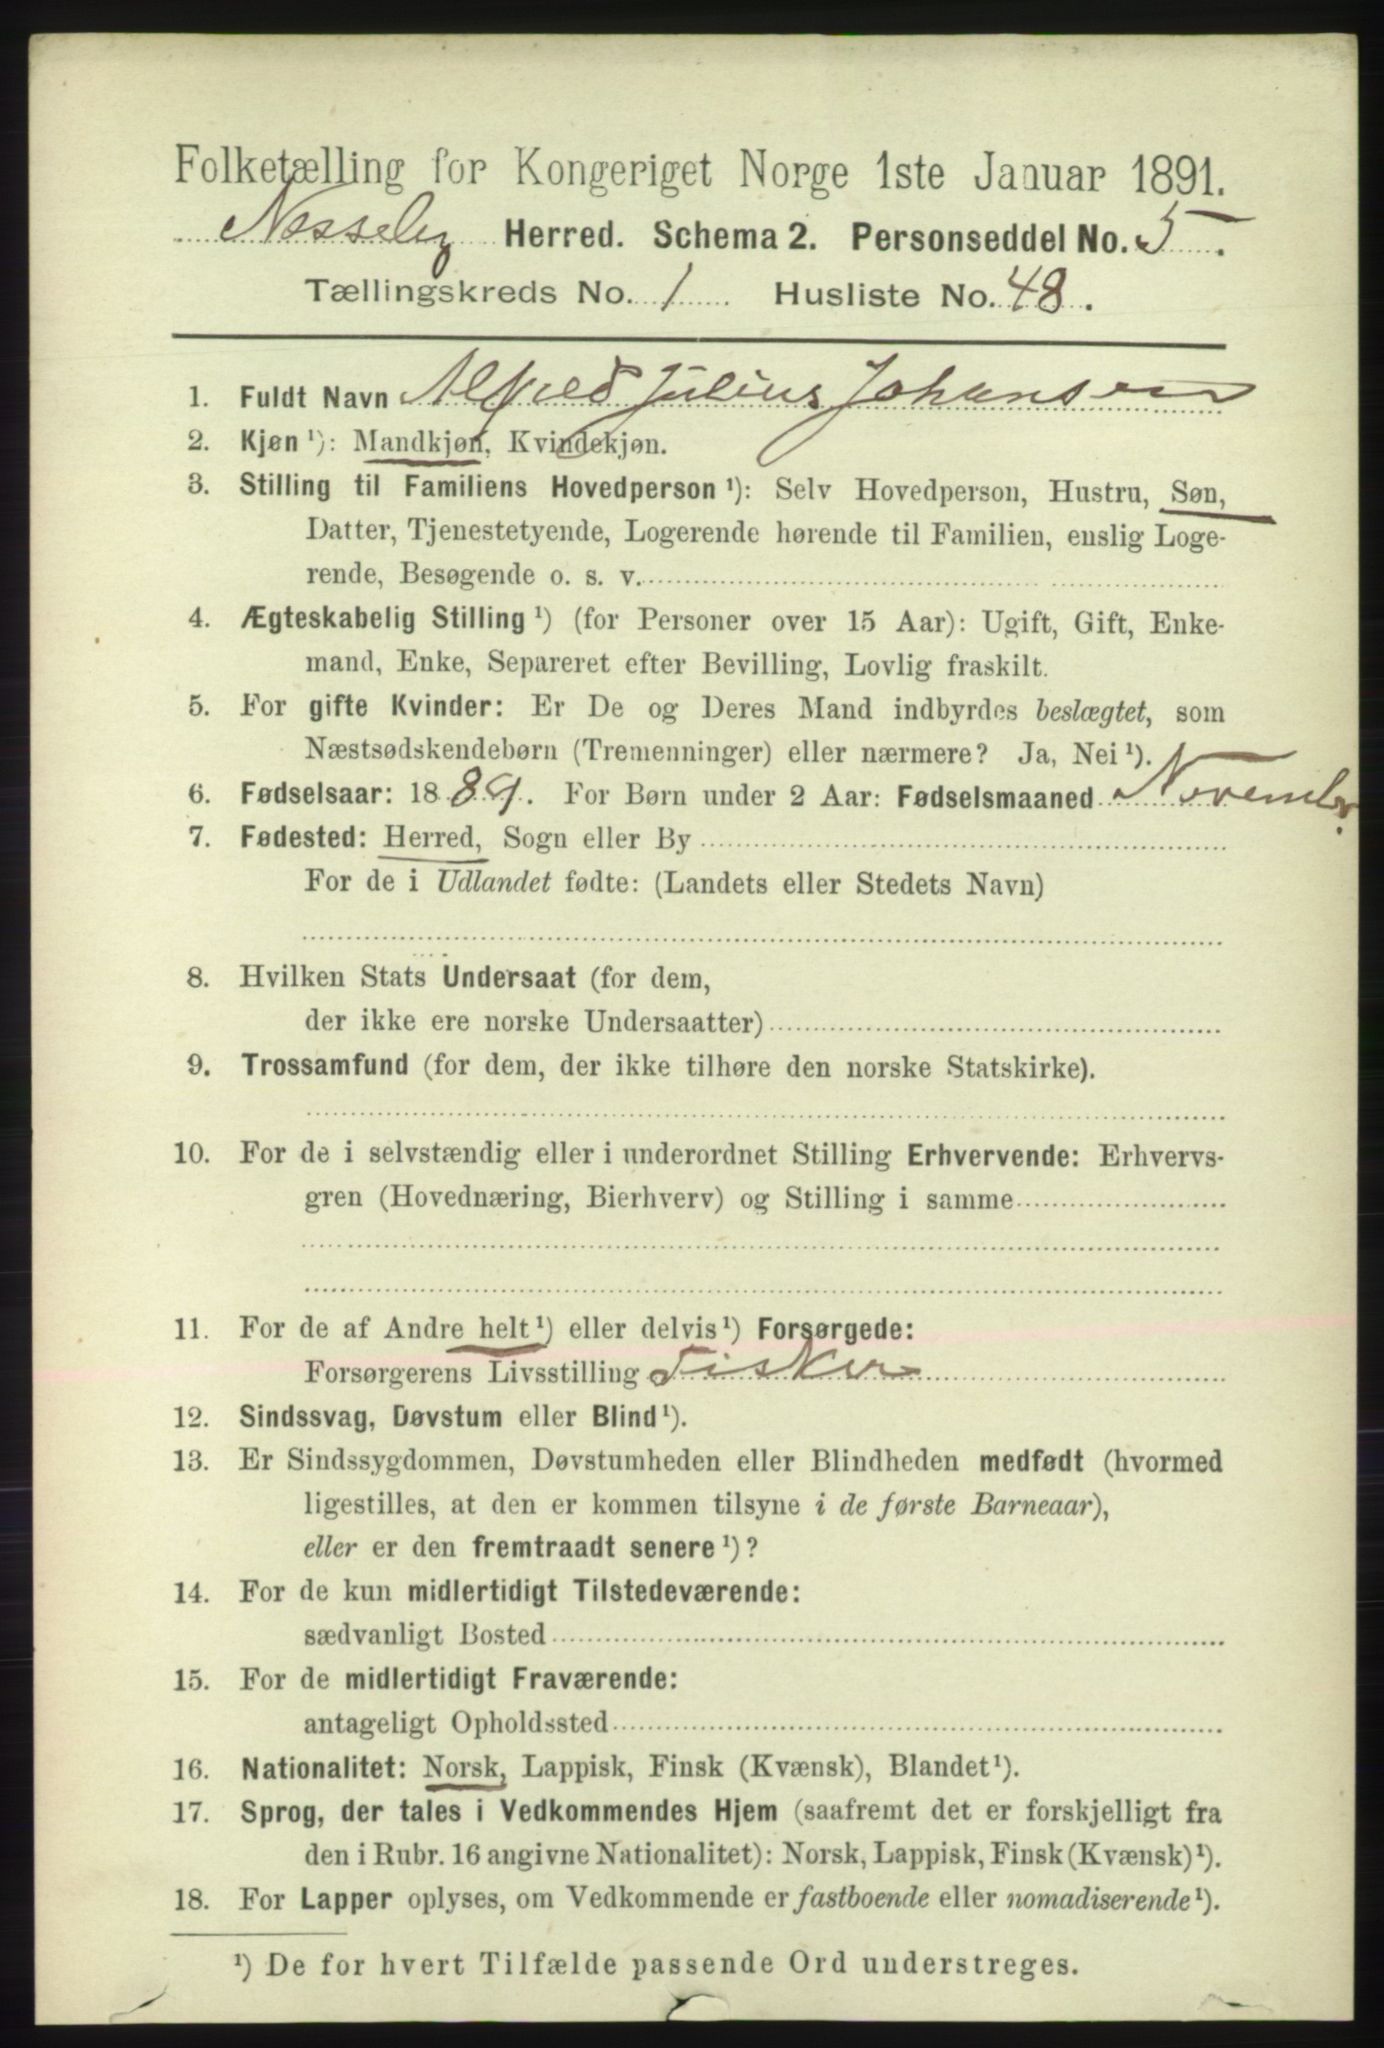 Folketælling for Kongeriget Norge 1ste Januar 1891.
Nesseby Herred. Schema 2. Personseddel No. 5.
Tællingskreds No. 1 Husliste No. 48.
1. Fuldt Navn Alfred Julius Johansen
2. Kjøn ¹): Mandkjøn, Kvindekjøn.
3. Stilling til Familiens Hovedperson ¹): Selv Hovedperson, Hustru, Søn,
Datter, Tjenestetyende, Logerende hørende til Familien, enslig Loge-
rende, Besøgende o. s. v.
4. Ægteskabelig Stilling ¹) (for Personer over 15 Aar): Ugift, Gift, Enke-
mand, Enke, Separeret efter Bevilling, Lovlig fraskilt.
5. For gifte Kvinder: Er De og Deres Mand indbyrdes beslægtet, som
Næstsødskendebørn (Tremenninger) eller nærmere? Ja, Nei ¹).
6. Fødselsaar: 1889. For Børn under 2 Aar: Fødselsmaaned November
7. Fødested: Herred, Sogn eller By
For de i Udlandet fødte: (Landets eller Stedets Navn)
8. Hvilken Stats Undersaat (for dem,
der ikke ere norske Undersaatter)
9. Trossamfund (for dem, der ikke tilhøre den norske Statskirke).
10. For de i selvstændig eller i underordnet Stilling Erhvervende: Erhvervs-
gren (Hovednæring, Bierhverv) og Stilling i samme
11. For de af Andre helt ¹) eller delvis ¹) Forsørgede:
Forsørgerens Livsstilling Fisker
12. Sindssvag, Døvstum eller Blind ¹).
13. Er Sindssygdommen, Døvstumheden eller Blindheden medfødt (hvormed
ligestilles, at den er kommen tilsyne i de første Barneaar),
eller er den fremtraadt senere ¹)?
14. For de kun midlertidigt Tilstedeværende:
sædvanligt Bosted
15. For de midlertidigt Fraværende:
antageligt Opholdssted
16. Nationalitet: Norsk, Lappisk, Finsk (Kvænsk), Blandet ¹).
17. Sprog, der tales i Vedkommendes Hjem (saafremt det er forskjelligt fra
den i Rubr. 16 angivne Nationalitet): Norsk, Lappisk, Finsk (Kvænsk) ¹).
18. For Lapper oplyses, om Vedkommende er fastboende eller nomadiserende ¹).
¹) De for hvert Tilfælde passende Ord understreges.